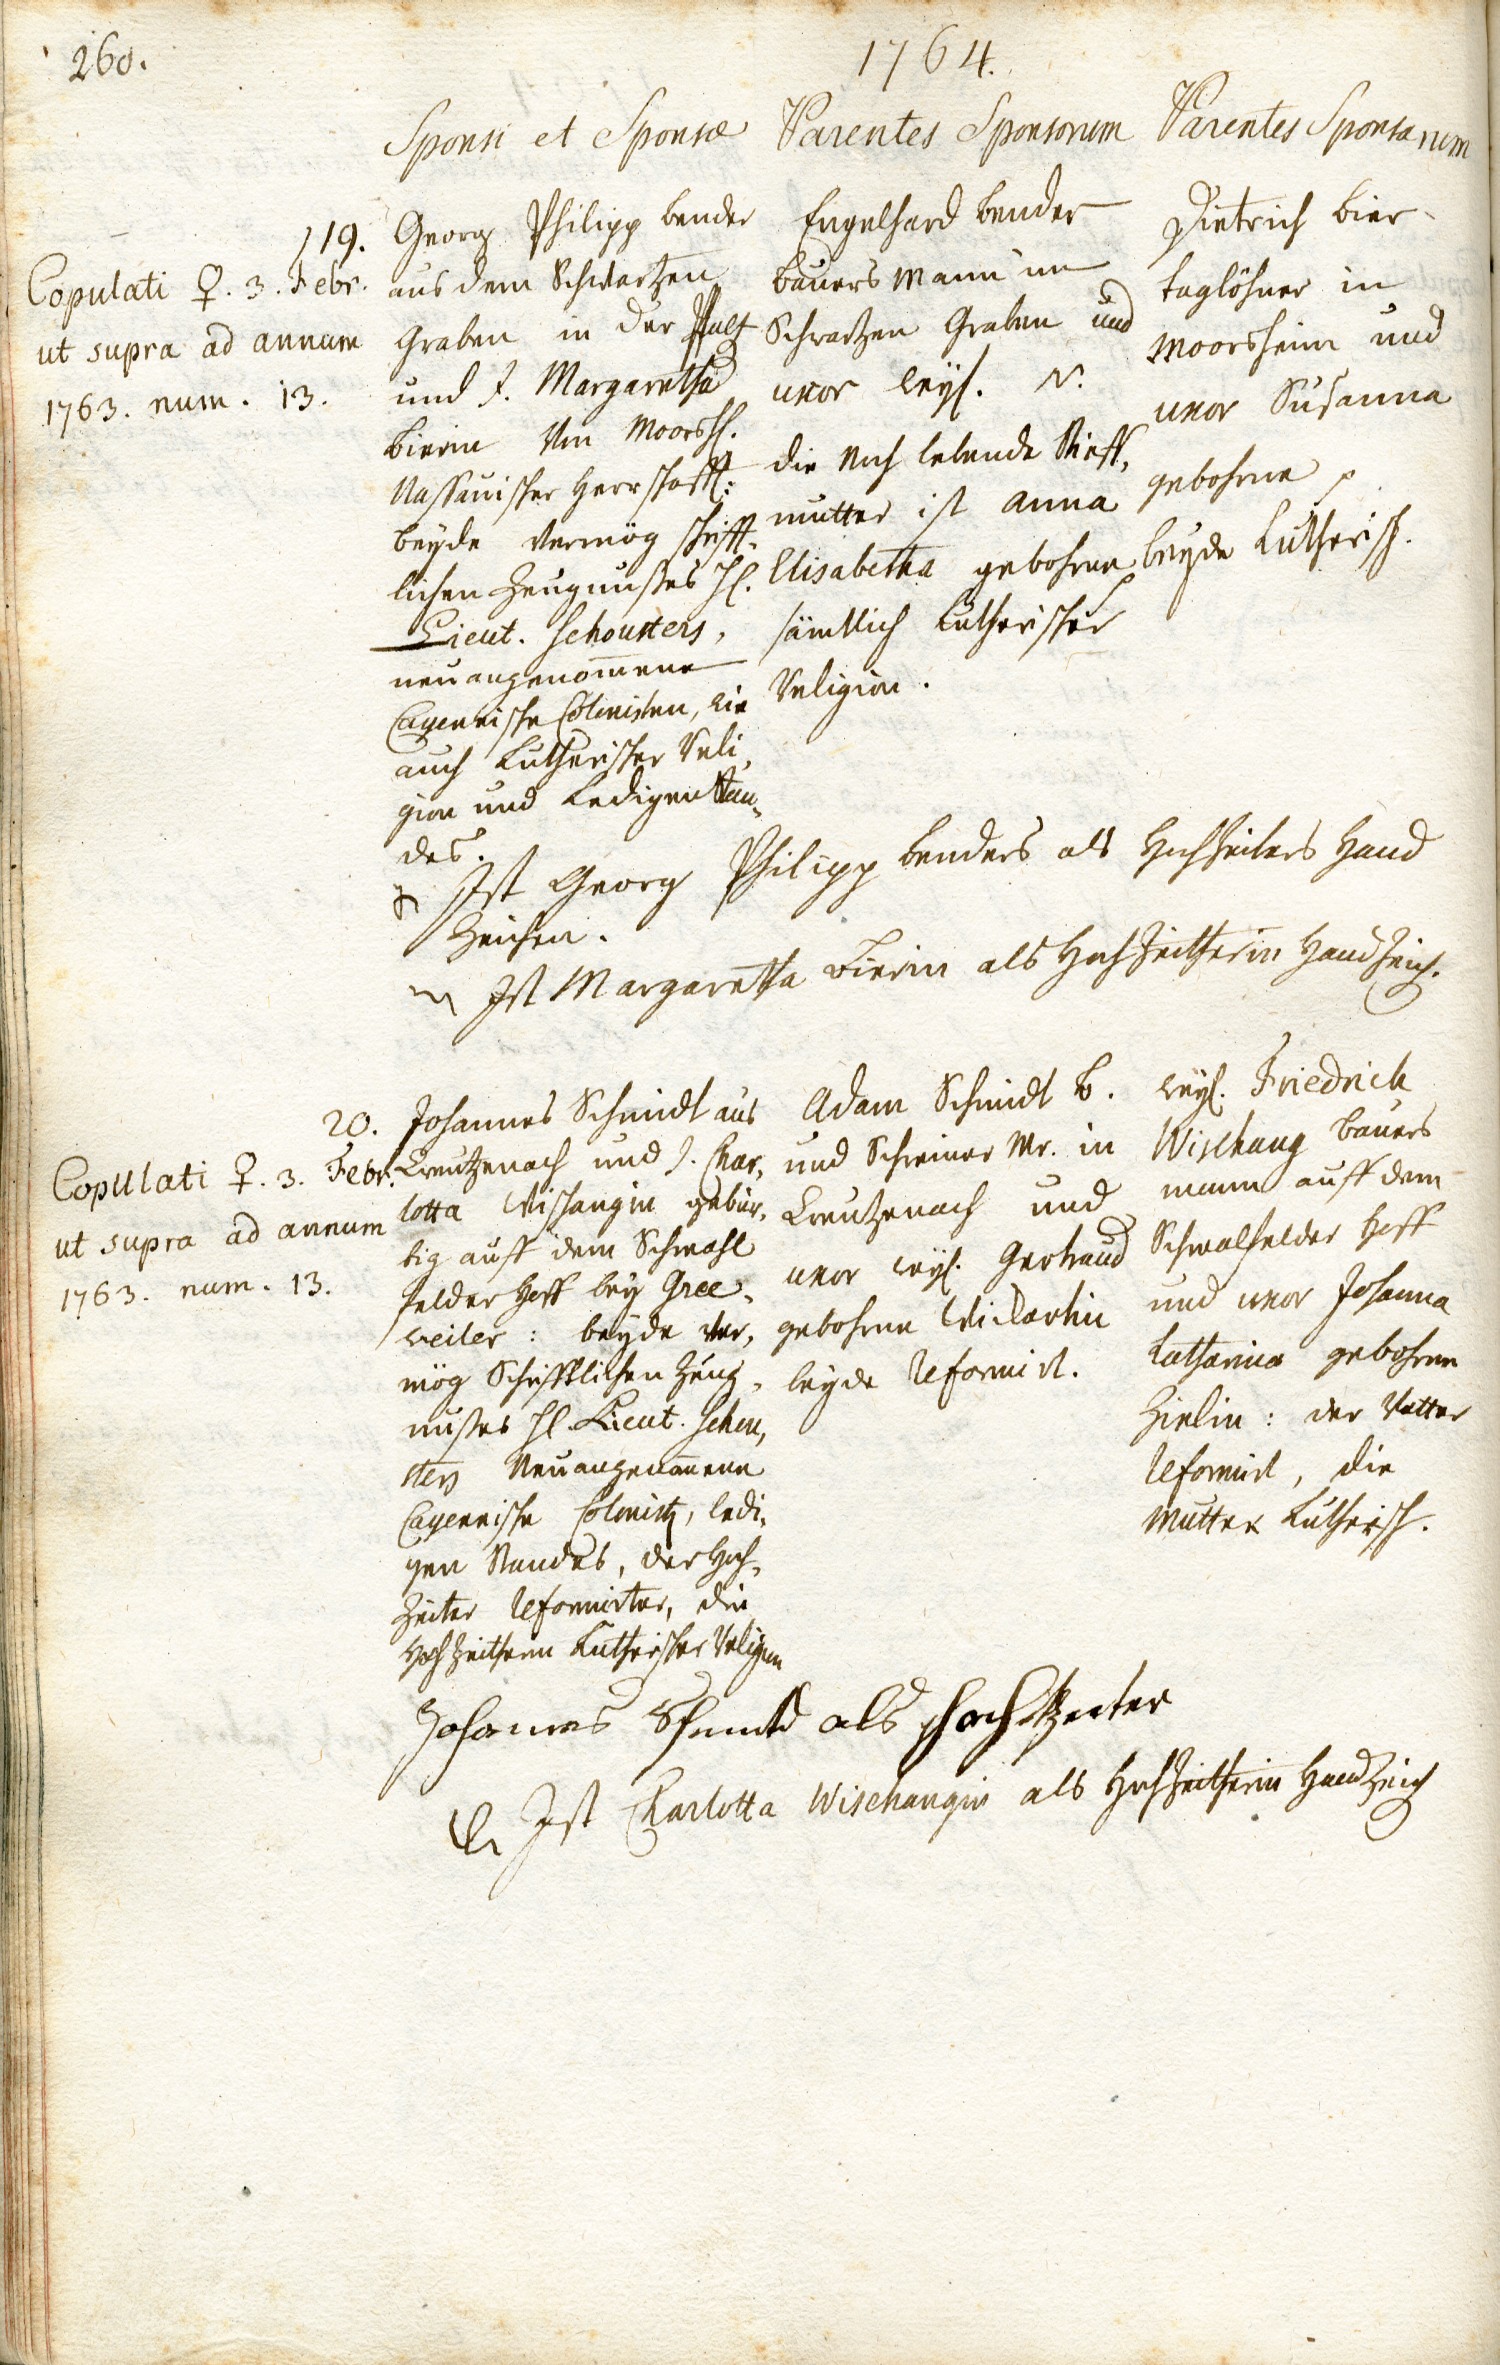 260.
1764.
Sponsi et Sponsæ
Parentes Sponsorum
Parentes Sponsarum
19.
Copulati ♀. 3. Febr.
ut supra ad annum
1763. num. 13.
Georg Philipp bender
aus dem Schwartzen
Graben in der Pfaltz
und J. Margaretha
Bierin von Moorsh.
Nassauischer Herrschafft:
beyde vermög schrifft-
lichen Zeugnußes H.
Lieut. Schousters,
neuangenom̄ene
Cayennische Colonisten, wie
auch Lutherischer Reli-
gion und Ledigen Stan-
des.
Engelhard bender
bauers Mann im
Schwartzen Graben und
uxor weyl. N.
die noch lebende Stieff-
mutter ist Anna
Elisabetha gebohrne
sämtlich Lutherischer
Religion.
Dietrich bier
taglöhner in
Moorsheim und
uxor Susanna
gebohrne
beyde Lutherisch.
Ist Georg Philipp benders als Hochzeiters Hand
Zeichen.
Ist Margaretha Bierin als Hochzeitherin Handzeich.
20.
Copulati ♀. 3. Febr.
ut supra ad annum
1763. num. 13.
Johannes Schmidt aus
Creutzenach und J. Char-
lotta Wischangin gebür-
tig auff dem Schwahl
felder Hoff bey Gree-
weiler: beyde ver-
mög Schrifftlichen Zeug-
nußes H. Lieut. Schou-
sters Neuangenom̄ene
Cayennische Colonist, ledi-
gen Standes, der Hoch-
zeiter Reformirter, die
Hochzeitherin Lutherischer Religion
Adam Schmidt b.
und Schreiner Mr. in
Creutzenach und
uxor weyl. Gertraud
gebohrne
beyde Reformirt.
weyl. Friedrich
Wischang bauers
mann auff dem
Schwalfelder Hoff
und uxor Johanna
Catharina gebohrne
Zielin: der Vatter
Reformirt, die
Mutter Lutherisch.
Johannes Schmidt als Hochzeiter
Ist Charlotta Wischangin als Hochzeitherin Handzeich